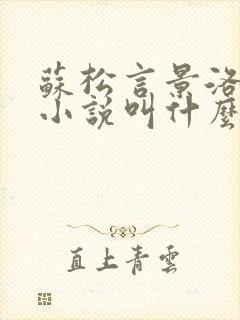 蘇松言景洛
小説叫什麼
直上青雲